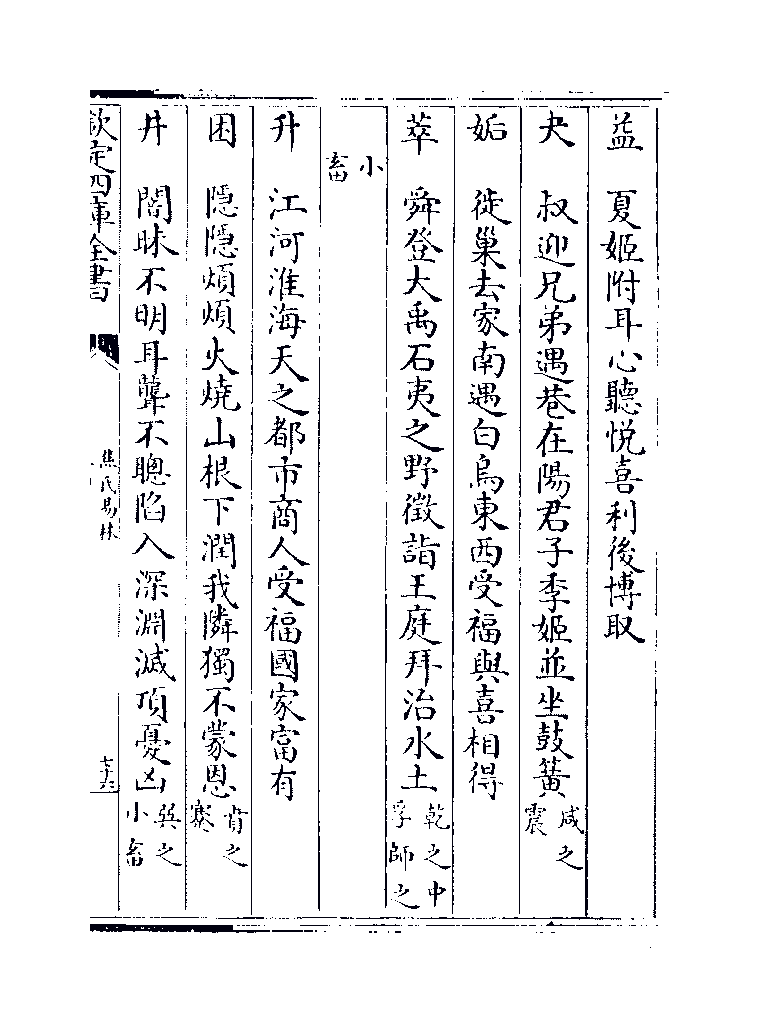 益　夏姬附耳心聽悅喜利後博取
夬　叔迎兄弟遇巷在陽君子季姬並坐鼓簧咸之震
姤　徙巢去家南遇白烏東西受福與喜相得
萃　舜登大禹石夷之野徵詣王庭拜治水土乾之中孚師之
小畜
升　江河淮海天之都市商人受福國家富有
困　隱隱煩煩火燒山根下潤我隣獨不蒙恩
井　闇昧不明耳聾不聰陷入深淵滅頂憂凶巽之小畜
欽定四庫全書
焦氏易林